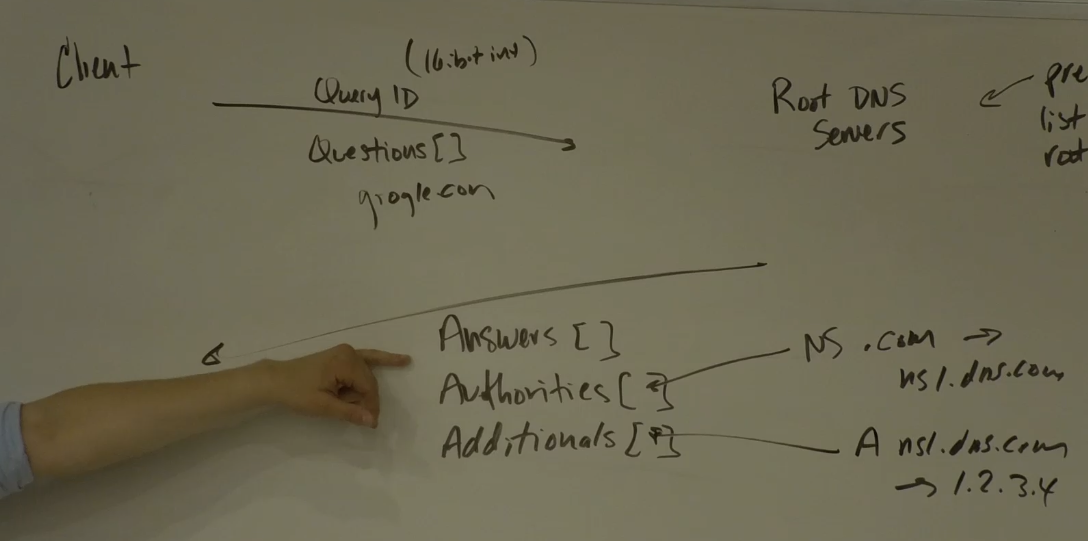 Client
(16-bit int)
Query ID
Questions[]
google.com
Root DNS
Servers
pre
list
root
Answers []
Authorities[ ]
Additionals [ ]
NS .com →
ns1.dns.com
A ns1.dns.com
→ 1.2.3.4